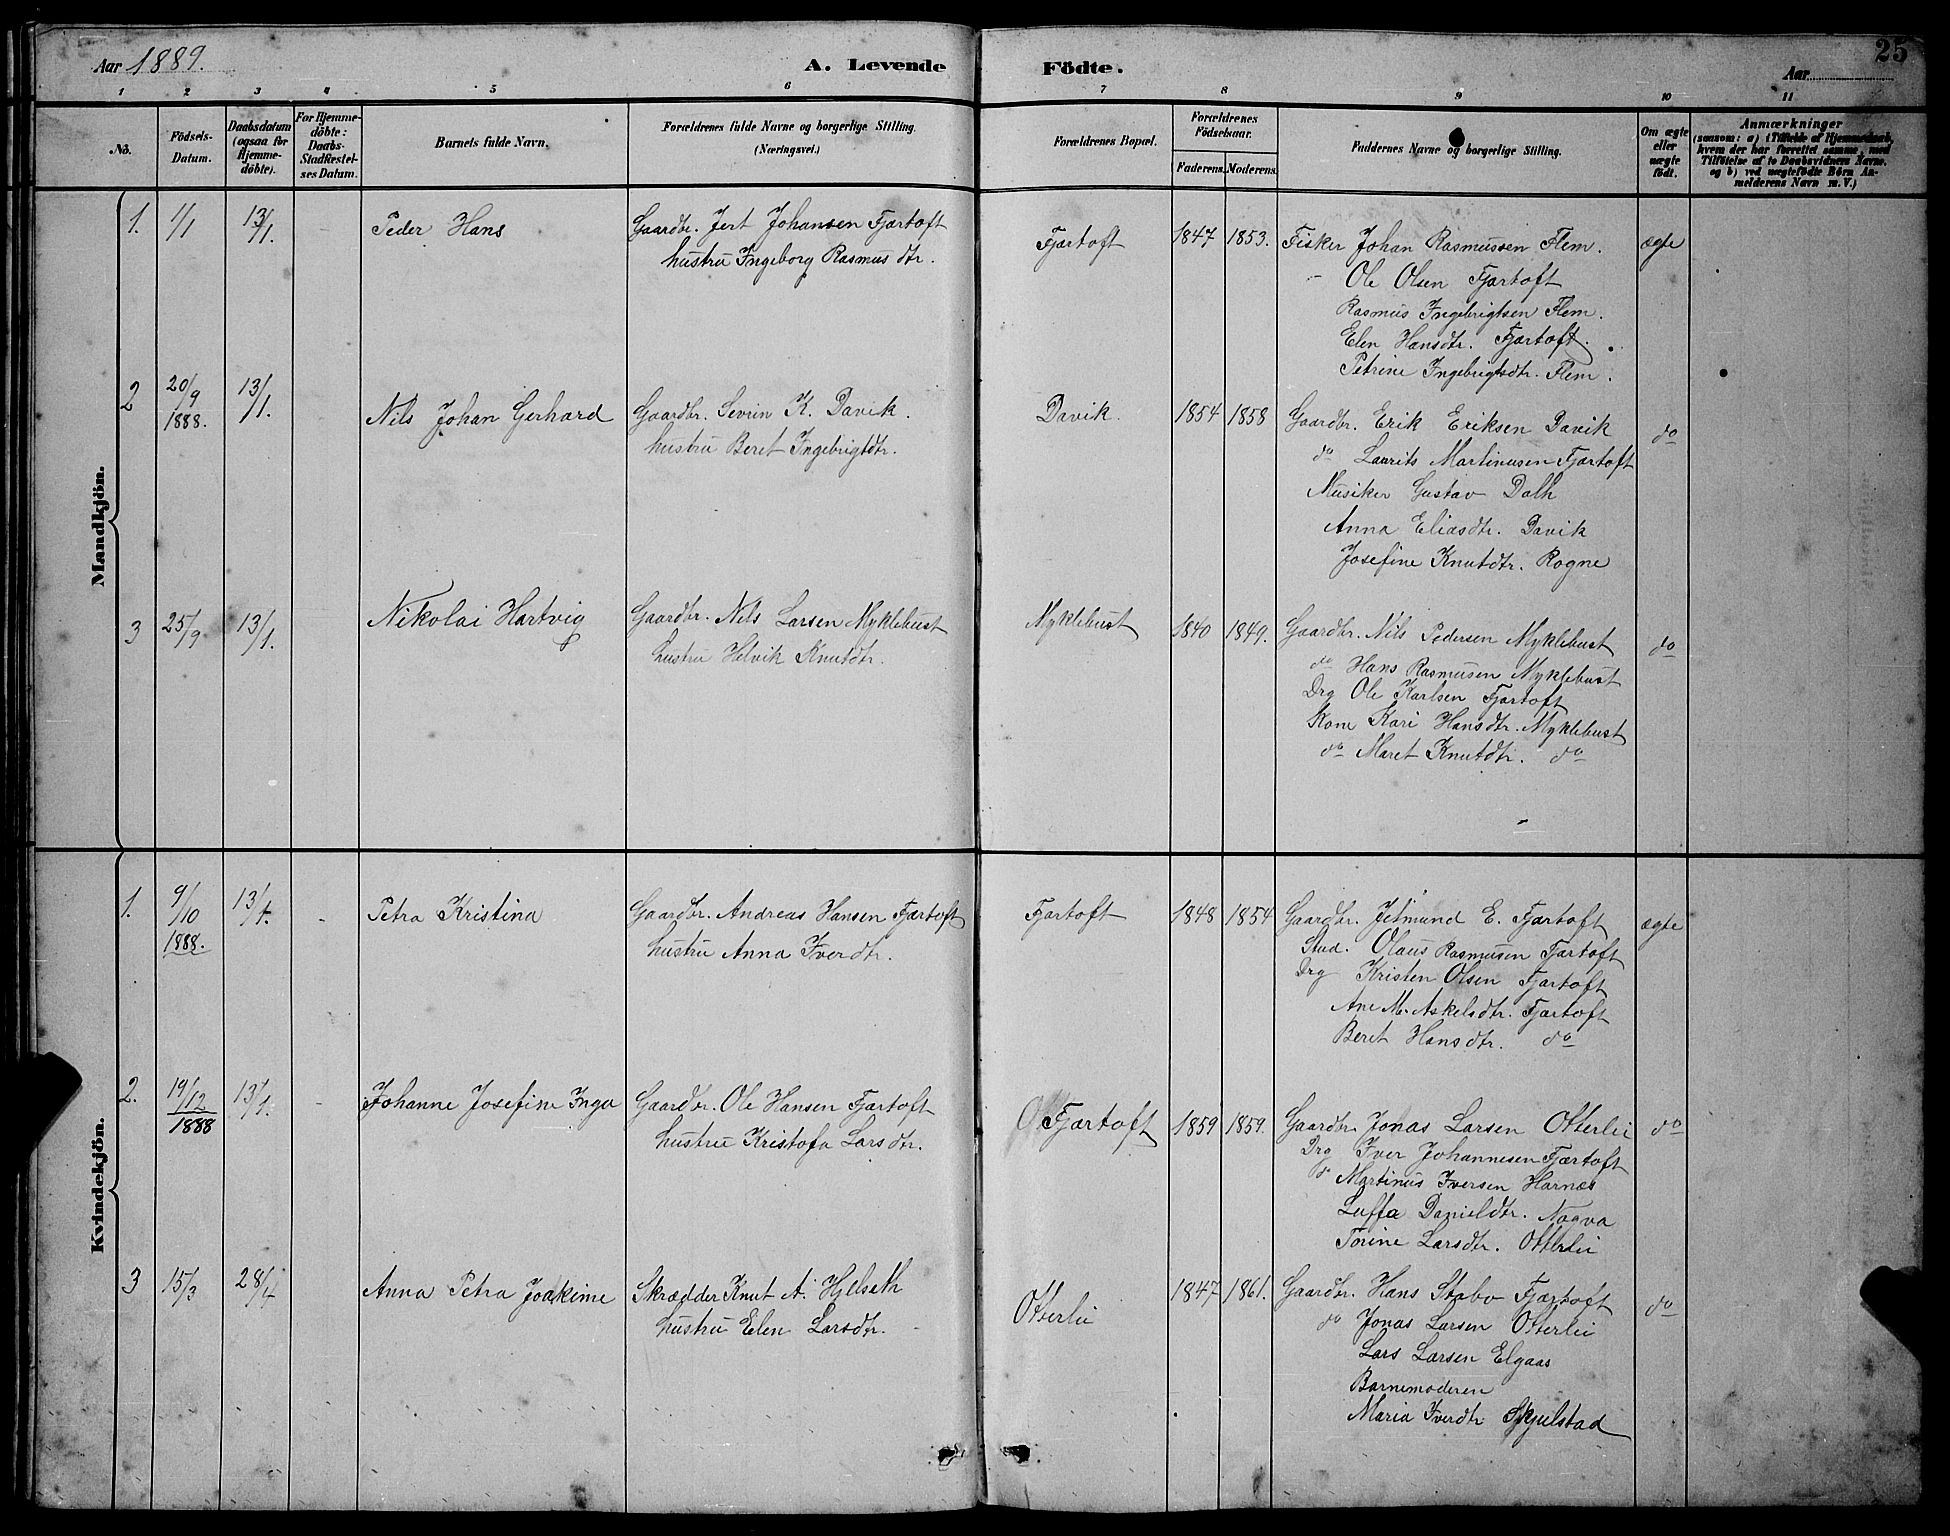 Aar 1889.
A. Levende Födte.
Aar
25
1 2 3 4 5 6 7 8 9 10 11
No.
Födsels-Datum.
Daabsdatum (ogsaa for Hjemme-döbte).
For Hjemme-döbte: Daabs-Stadfæstel-ses Datum.
Barnets fulde Navn.
Forældrenes fulde Navne og borgerlige Stilling. (Næringsvei.)
Forældrenes Bopæl.
Forældrenes Födselsaar.
Faderens. Moderens.
Faddernes Navne og borgerlige Stilling.
Om ægte eller uægte födt.
Anmærkninger
(saasom: a) i Tilfælde af Hjemmedaab, hvem der har forrettet samme, med Tilföielse af to Daabsvidners Navne, og b) ved uægtefödte Börn Anmelderens Navn m. V.)
Mandkjön.
1. 1/1 13/1. Peder Hans
Gaardbr. Jert Johansen Fjærtoft
hustru Ingeborg Rasmusdtr.
Fjærtoft 1847 1853.
Fisker Johan Rasmussen Flem. ægte
- Ole Olsen Fjærtoft
Rasmus Ingebrigtsen Flem.
Elen Hansdtr. Fjærtoft.
Petrine Ingebrigtsdtr. Flem.
2 20/9 1888. 13/1. Nils Johan Gerhard
Gaardbr. Sevrin K. Davik.
hustru Beret Ingebrigtdtr.
Davik. 1854 1858
Gaardbr. Erik Eriksen Davik do
do Laurits Martinusen Fjærtoft
Musiker Gustav Dalh
Anna Eliasdtr. Davik
Josefine Knutdtr. Rogne
3 25/9 13/1. Nikolai Hartvig
Gaardbr. Nils Larsen Myklebust
hustru Helvik Knutdtr.
Myklebust 1840 1849.
Gaardbr. Nils Pedersen Myklebust do
do Hans Rasmusen Myklebust
Drg Ole Karlsen Fjærtoft
Kone Kari Hansdtr. Myklebust
do Maret Knutdtr. do
Kvindekjön.
1. 9/10 1888. 13/1. - Petra Kristina
Gaardbr. Andreas Hansen Fjærtoft
hustru Anna Iverdtr.
Fjærtoft 1848 1854
Gaardbr. Jetmund E. Fjærtoft ægte
Stud. Olaus Rasmusen Fjærtoft
Drg Kristen Olsen Fjærtoft
Ane M. Askelsdtr. Fjærtoft
Beret Hansdtr. do
2. 19/12 1888 13/1. - Johanne Josefine Inga
Gaardbr. Ole Hansen Fjærtoft
hustru Kristofa Larsdtr.
Fjærtoft 1859 1859.
Gaardbr. Jonas Larsen Otterlei do
Drg Iver Johannesen Fjærtoft
do Martinus Iversen Harnæs
Luffa Danieldtr. Nogva
Torine Larsdtr. Otterlei
3 15/3 28/4 Anna Petra Joakime
Skrædder Knut A. Hjelseth
hustru Elen Larsdtr. -
Otterlei 1847 1861.
Gaardbr. Hans Stabo Fjærtoft do
do Jonas Larsen Otterlei
Lars Larsen Elgaas
Barnemoderen
Maria Iverdtr Skjelstad